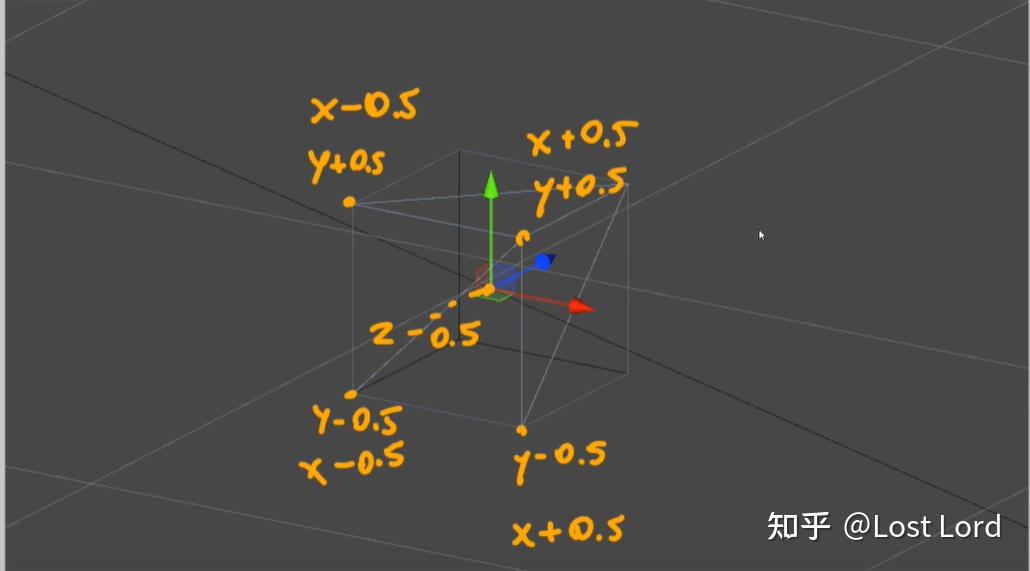 x-0.5
y+0.5
x+0.5
y+0.5
z-0.5
y-0.5
x-0.5
y-0.5
x+0.5
知乎 @Lost Lord